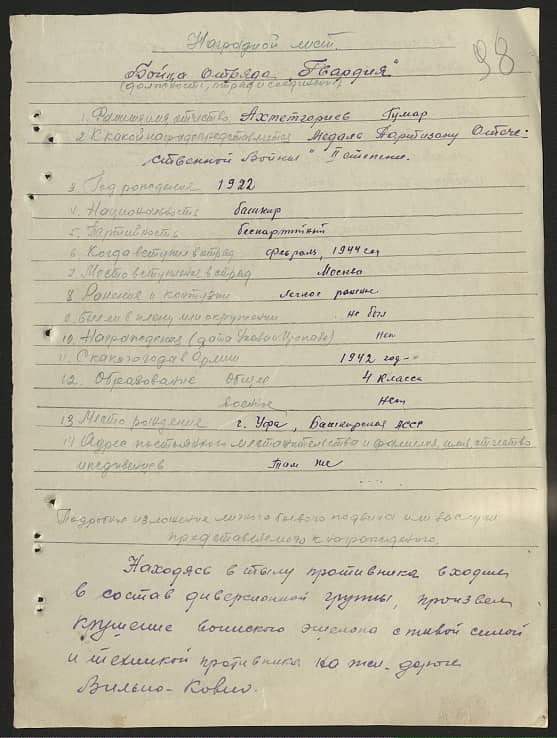 98
Наградной лист.
Бойца Отряда „Гвардия"
(должность, отряд и соединение)
1. Фамилия отчество Ахметгориев Гумар
2. К какой награде представляется Медаль Партизану Отече-
ственной Войны" II степени.
3. Год рождения 1922
4. Национальность башкир
5. Партийность беспартийный
6. Когда вступил в отряд февраль, 1944 год
7. Место вступления в отряд Москва
8. Ранение и контузии легкое ранение
9. Были в плену или окружении не был
10. Награждения (дата Указа) нет
11. С какого года в Армии 1942 год
12. Образование общее 4 класса
военное нет
13. Место рождения г. Уфа, Башкирская АССР
14 Адрес постоянного местожительства и фамилия, имя, отчество
иждивенцев там же
Подробное изложение личного боевого подвига или заслуги
представляемого к награждению.
Находясь в тылу противника входил
в состав диверсионной группы, произвел
крушение воинского эшелона с живой силой
и техникой противника на жел. дороге
Вильно-Ковно.